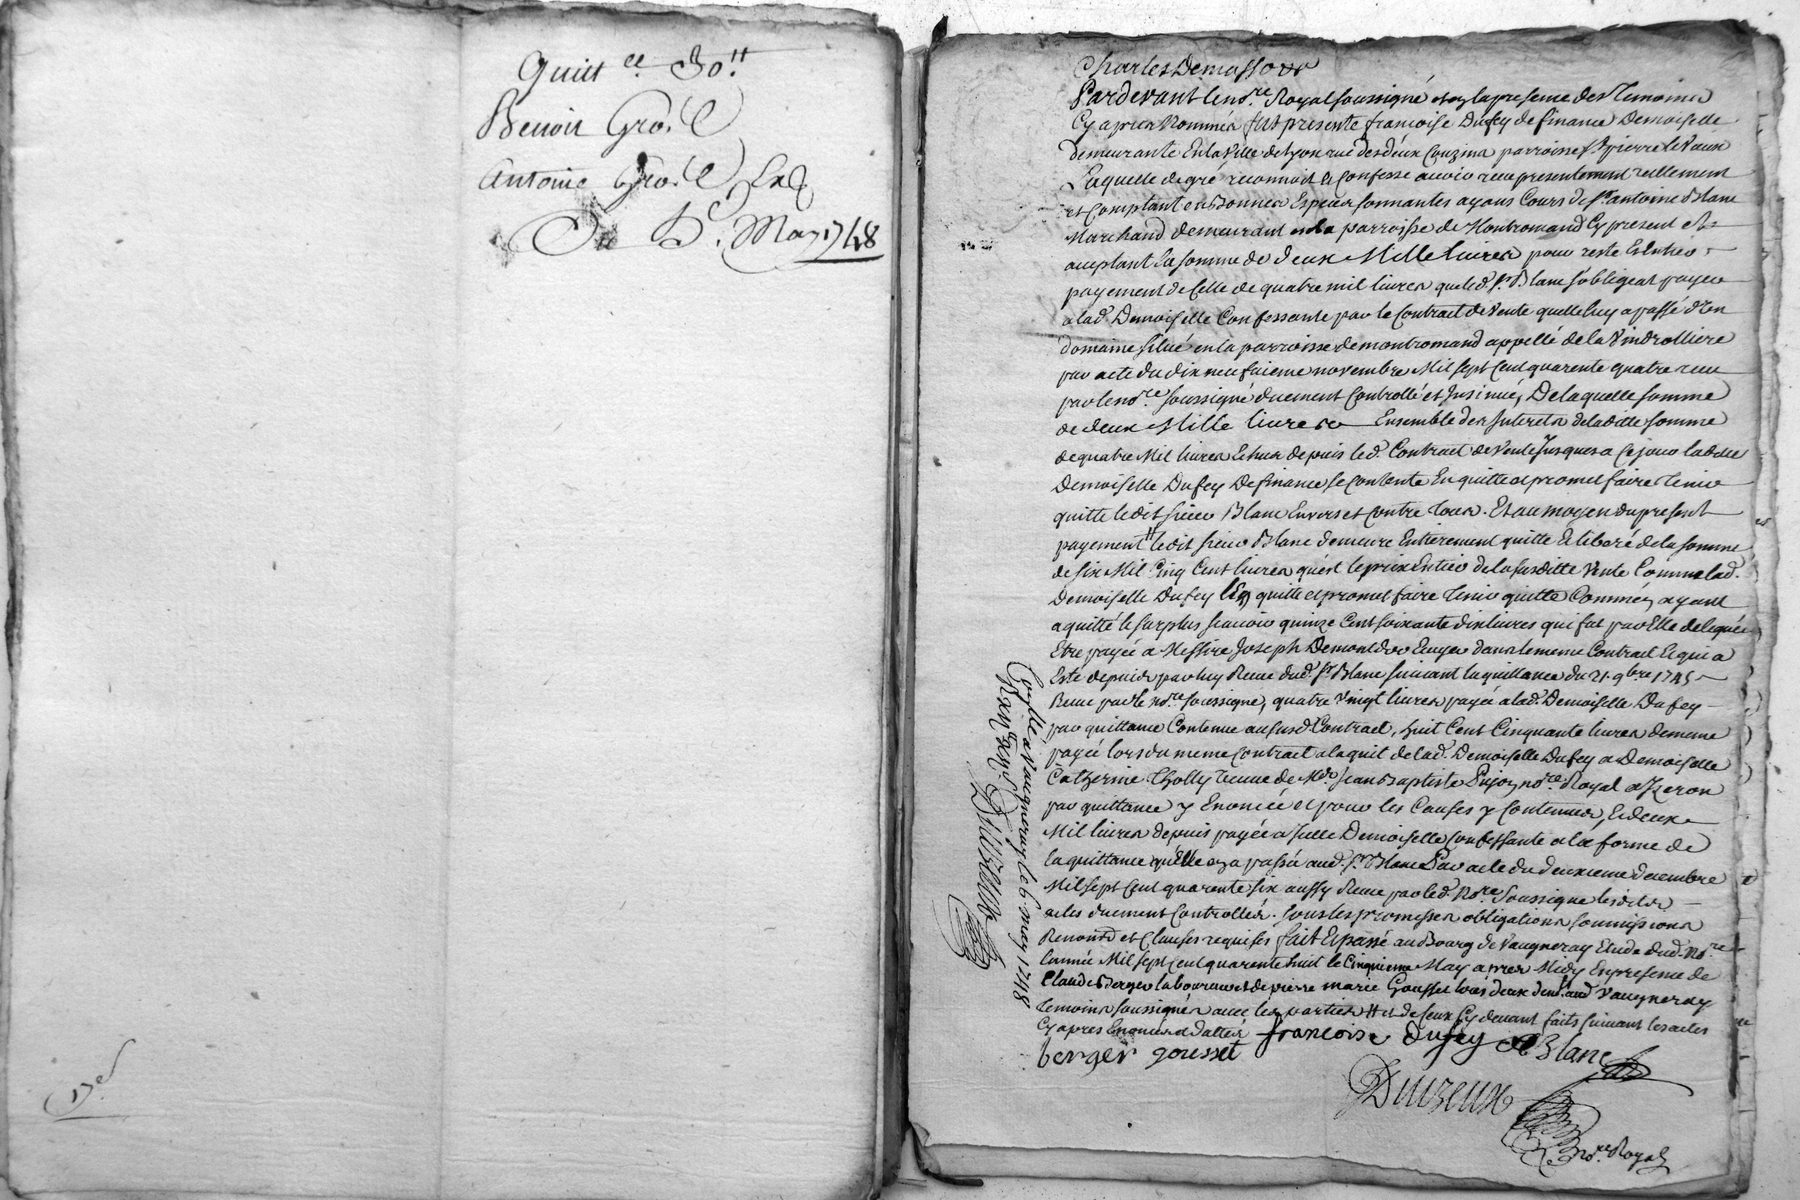 Quitt.ce 30.tt
Benoit Gro
Antoine Gro
Du 5.e May 1748
17e
Charles Demasso
Pardevant le no.re Royal soussigné et en la presence des Temoins
Cy apres Nommés fut presente francoise Dufey de finance Demoiselle
demeurante En la Ville de Lyon rue des deux Couzins parroisse St pierre le Vieux
Laquelle de gré reconnoit et Confesse avoir receu presentement reellement
et Comptant en Bonnes Especes sonnantes ayans Cours de Sr antoine Blanc
Marchand demeurant en la parroisse de Montromand Cy present et
aceptant La somme de deux Mille livres pour reste Et Entier
payement de Celle de quatre mil livres que led. Sr Blanc s'obligeat payer
a lad. Demoiselle Confessante par le Contract de Vente quelle luy a passé d'un
domaine situé en la parroisse de montromand appellé de la Vindrolliere
par acte du dix neufvieme novembre Mil sept Cent quarente quatre receu
par le no.re soussigné duement Controllé et Insinué, De laquelle somme
de deux Mille livres Ensemble des Interets de la ditte somme
de quatre Mil livres Echus depuis led. Contract de Vente Jusques a Ce jour la ditte
Demoiselle Dufey De finance se Contente En quitte et promet faire Tenir
quitte le dit sieur Blanc Envers et Contre tous. Et au moyen du present
payement tt le dit sieur Blanc demeure Entierement quitte Et liberé de la somme
de six Mil Cinq Cent livres qu'est le prix Entier de la susditte Vente Comme lad.
Demoiselle Dufey l'En quitte et promet faire Tenir quitte Comme ayant
aquitté le surplus scavoir quinze Cent soixante dix livres qui fut par Elle deleguée
Etre payée a Messire Joseph Demontdor Ecuyer dans le meme Contract Et qui a
Esté depuis par luy Receue dud. Sr Blanc suivant la quittance du 21. 9bre 1745
Receue par le no.re soussigné, quatre Vingt livres payée a lad. Demoiselle Dufey
par quittance Contenue au susd. Contract, huit Cent Cinquante livres de meme
payée lors du meme Contract a laquit de lad. Demoiselle Dufey a Demoiselle
Catherine Tholly veuve de Me Jean Baptiste Pujoz no.re Royal a Yzeron
par quittance y Enoncée et pour les Causes y Contenues, Et deux
Mil livres depuis payée a sulle Demoiselle Confessante a la forme de
la quittance qu'Elle en a passée aud. Sr Blanc Par acte du deuxieme decembre
Mil sept Cent quarente six aussy Receue par led. No.re Soussigné lesdits
actes duement Controllés. sous les promesses obligations soumissions
Renond et Clauses requises fait Et passé au Bourg de Vaugneray Etude dud. No.re
l'année Mil sept Cent quarente huit le Cinquieme May apres Midy En presence de
Claude Berger laboureur et de pierre marie Gousset tous deux dem.t aud Vaugneray
Temoins soussignés avec les parties tt et de Ceux Cy devant faits suivant les actes
Cy apres Enoncés et dattés francoise dufey Blanc
berger gousset
Duizeux
no.re Royal
Con.llé a Vaugneray le 6 may 1748